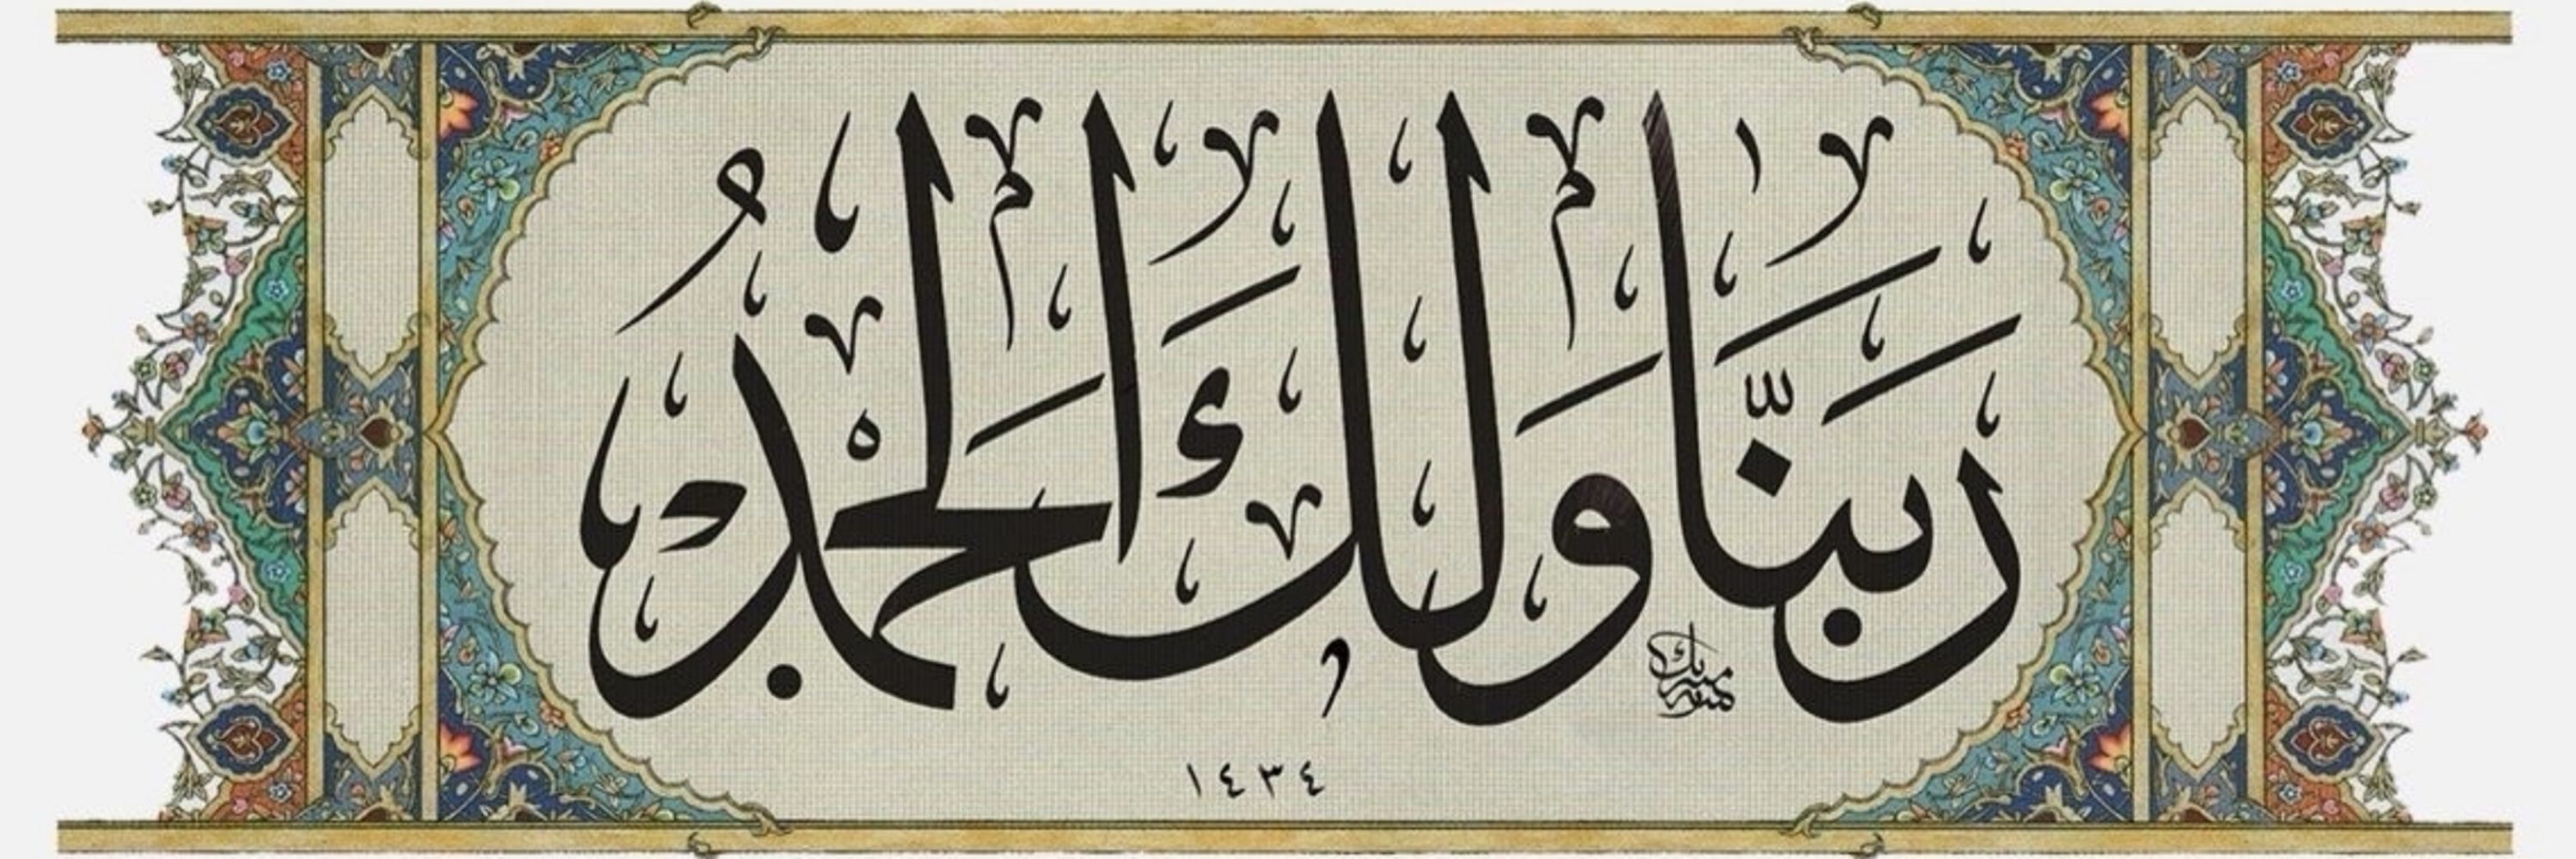 رَبَّنَا وَلَكَ الْحَمْدُ
١٤٣٤